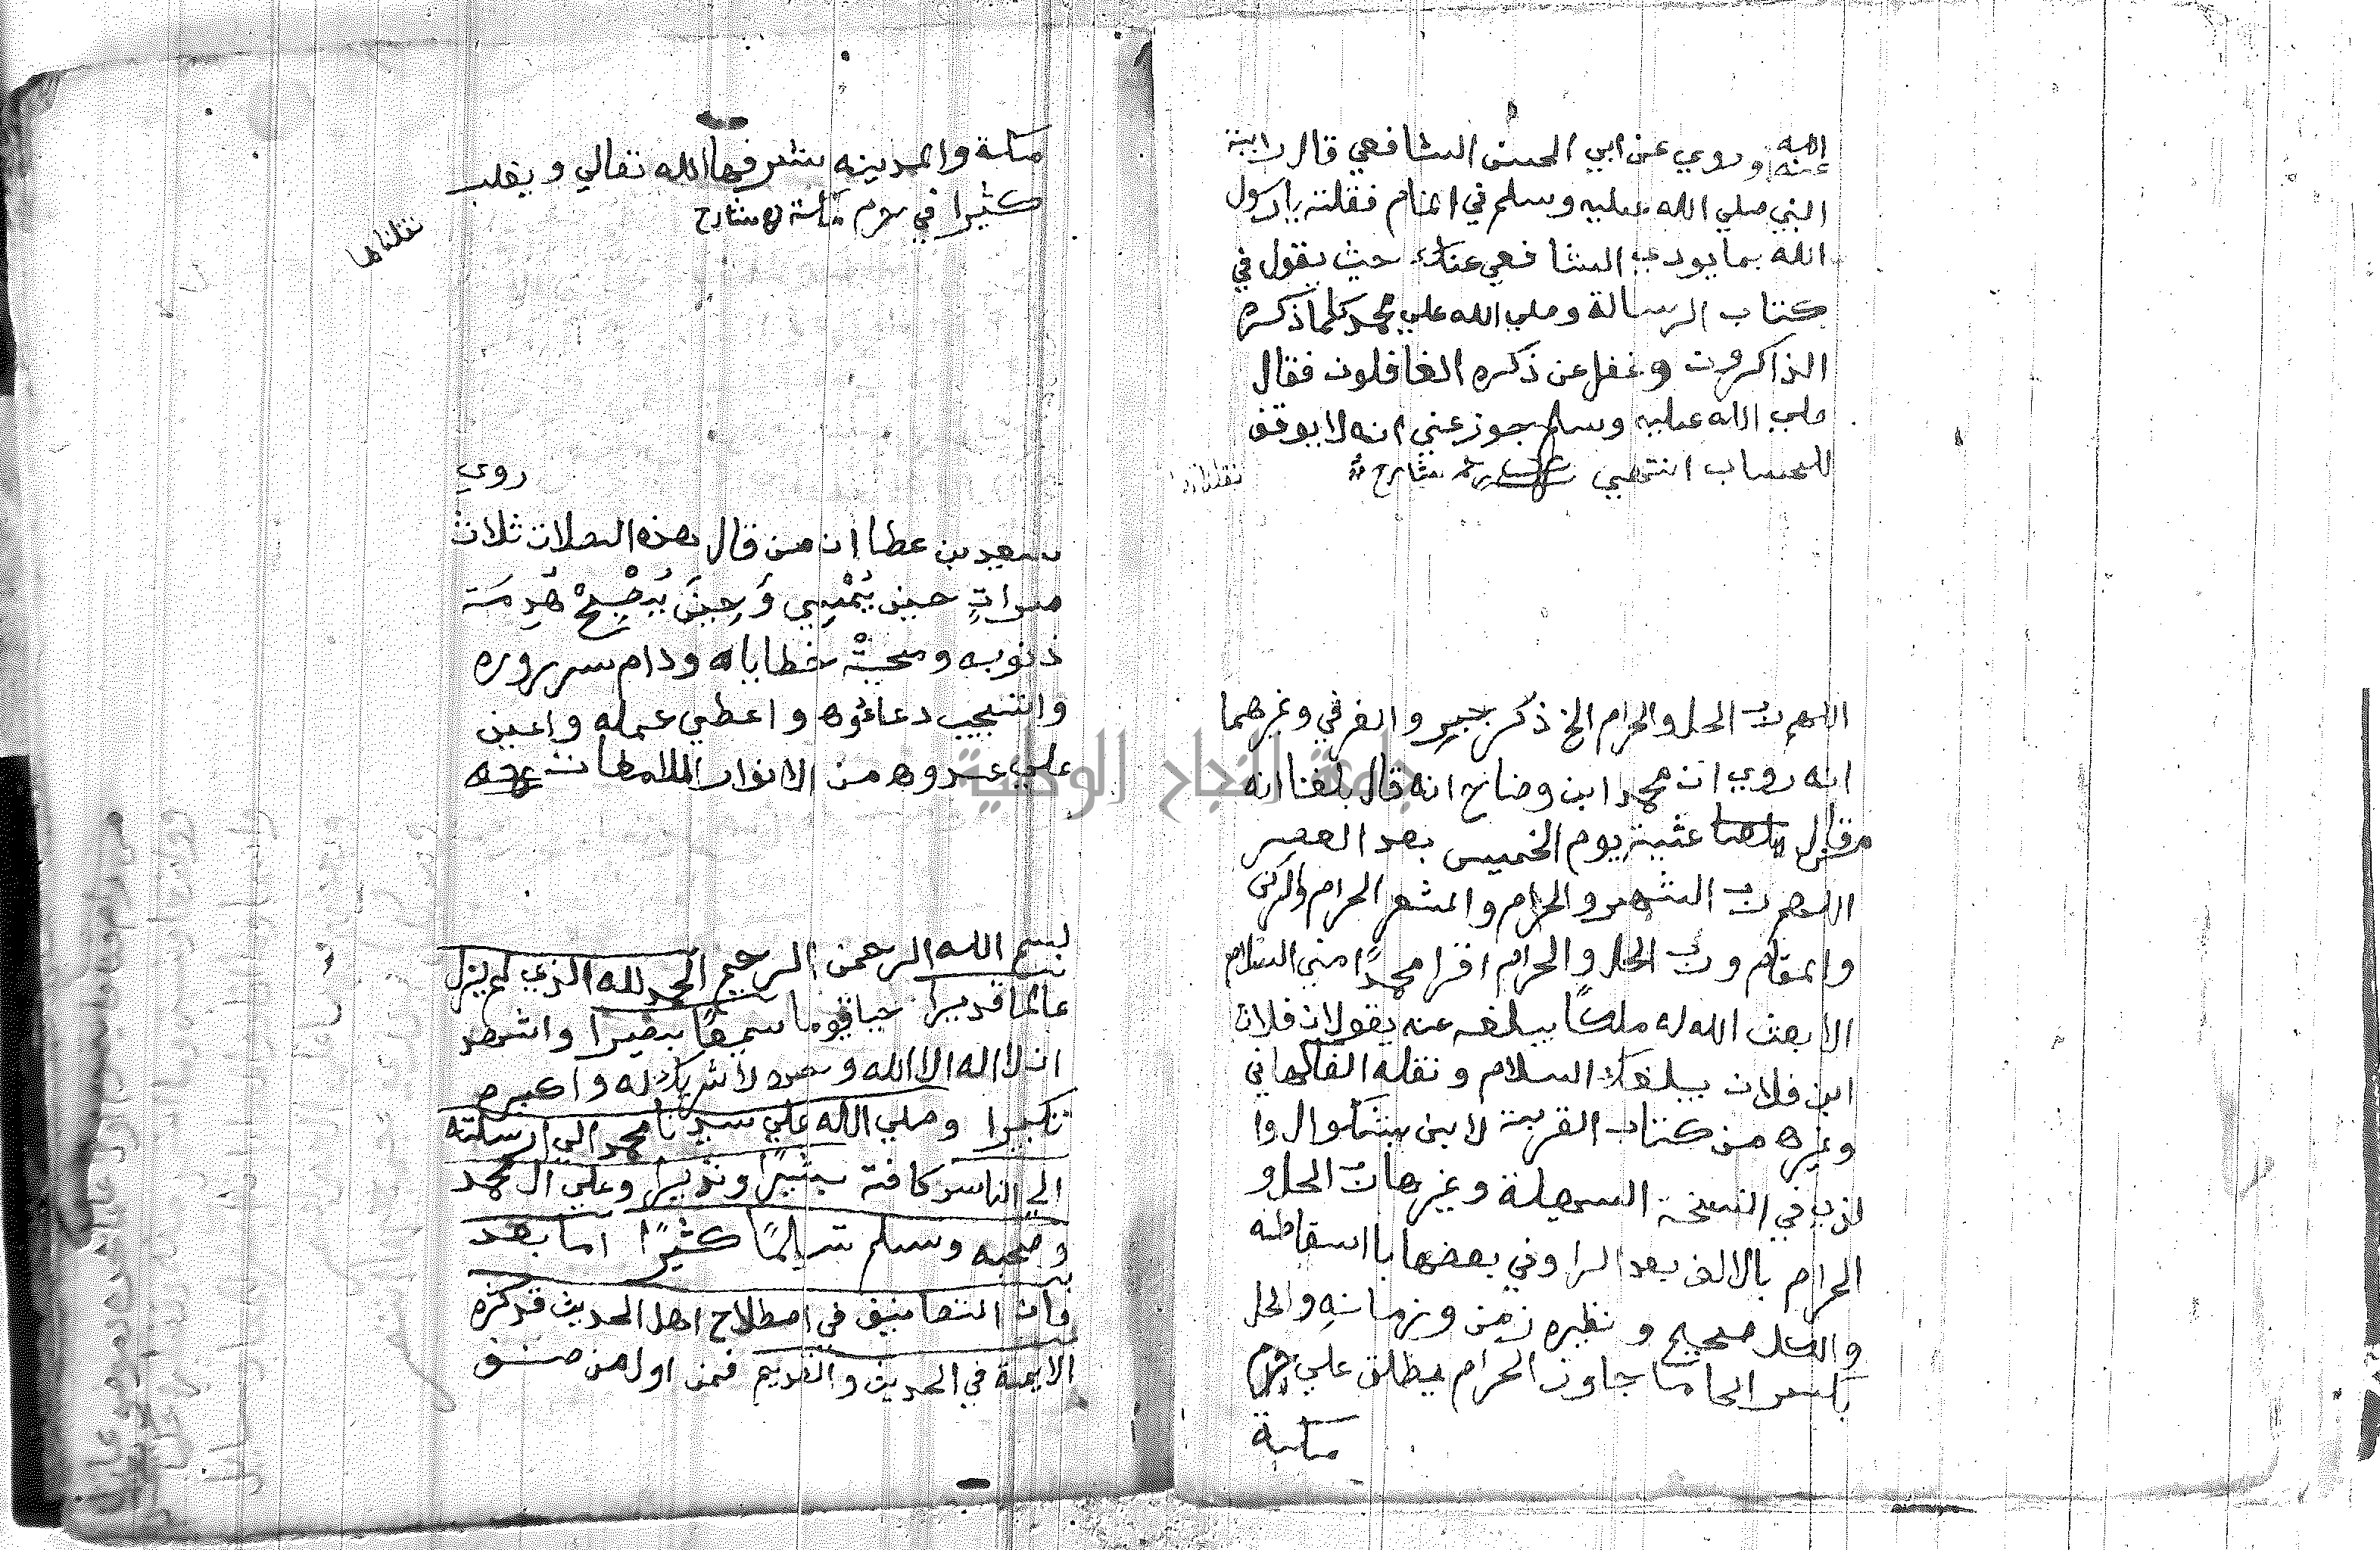 الله
عنه وروي عن ابي الحسن الشافعي قال رايت
النبي صلي الله عليه وسلم في المنام فقلت يا رسول
الله بما يودي الشافعي عنك حيث يقول في
كتاب الرسالة وصلي الله علي محمد كلما ذكره
الذاكرون وغفل عن ذكره الغافلون فقال
صلي الله عليه وسلم جوز عني انه لا يوقف
للحساب انتهي شارح
نقلناها
اللهم رب الحل والحرام الخ ذكر جبر والغرفي وغيرهما
انه روي ان محمد ابن وضاح انه قال بلغنا انه
من قال عشية يوم الخميس بعد العصر
اللهم رب الشهر والحرام والمشعر الحرام والركن
والمقام ورب الحل والحرام اقرا محمدًا مني السلام
الا بعث الله له ملكا يبلغه عنه يقول ان فلان
ابن فلان يبلغك السلام ونقله الفاكهاني
وغيره من كتاب القربة لابن بشكوال وا
لذي في النسخة السهلة وغيرها رب الحل و
الحرام بالالف بعد الرا وفي بعضها باسقاطه
والكل صحيح ونظيره زمن وزمانه والحل
بكسر الحا ما جاوز الحرام يطلق علي حرم
مكة
مكة والمدينه شرفها الله تعالي ويغلب
كثيرا في حرم مكة شارح
نقلناها
روي
سعيد بن عطا ان من قال هذه الصلات ثلاث
مراتٍ حين يُمْسِي وَحِينَ يُصْبِحْ هُدِمَت
ذنوبه ومحيتْ خطاياه ودام سروره
واستجيب دعائوه واعطي عمله واعين
علي عدوه من الانوار اللامعات
بسم الله الرحمن الرحيم الحمد لله الذي لم يزل
عالما قديرا حيا قيوما سميعًا بصيرا واشهد
ان لا اله الا الله وحده لا شريك له واكبره
تكبيرا وصلي الله علي سيدنا محمد الي ارسلته
الي الناس كافة بشيرًا ونذيرا وعلي ال محمد
وصحبه وسلم تسليمًا كثيرًا اما بعد
فان التصانيف في اصطلاح اهل الحديث قد كثره
الايمة في الحديث والقديم فمن اول من صنف
جامعة النجاح الوطنية